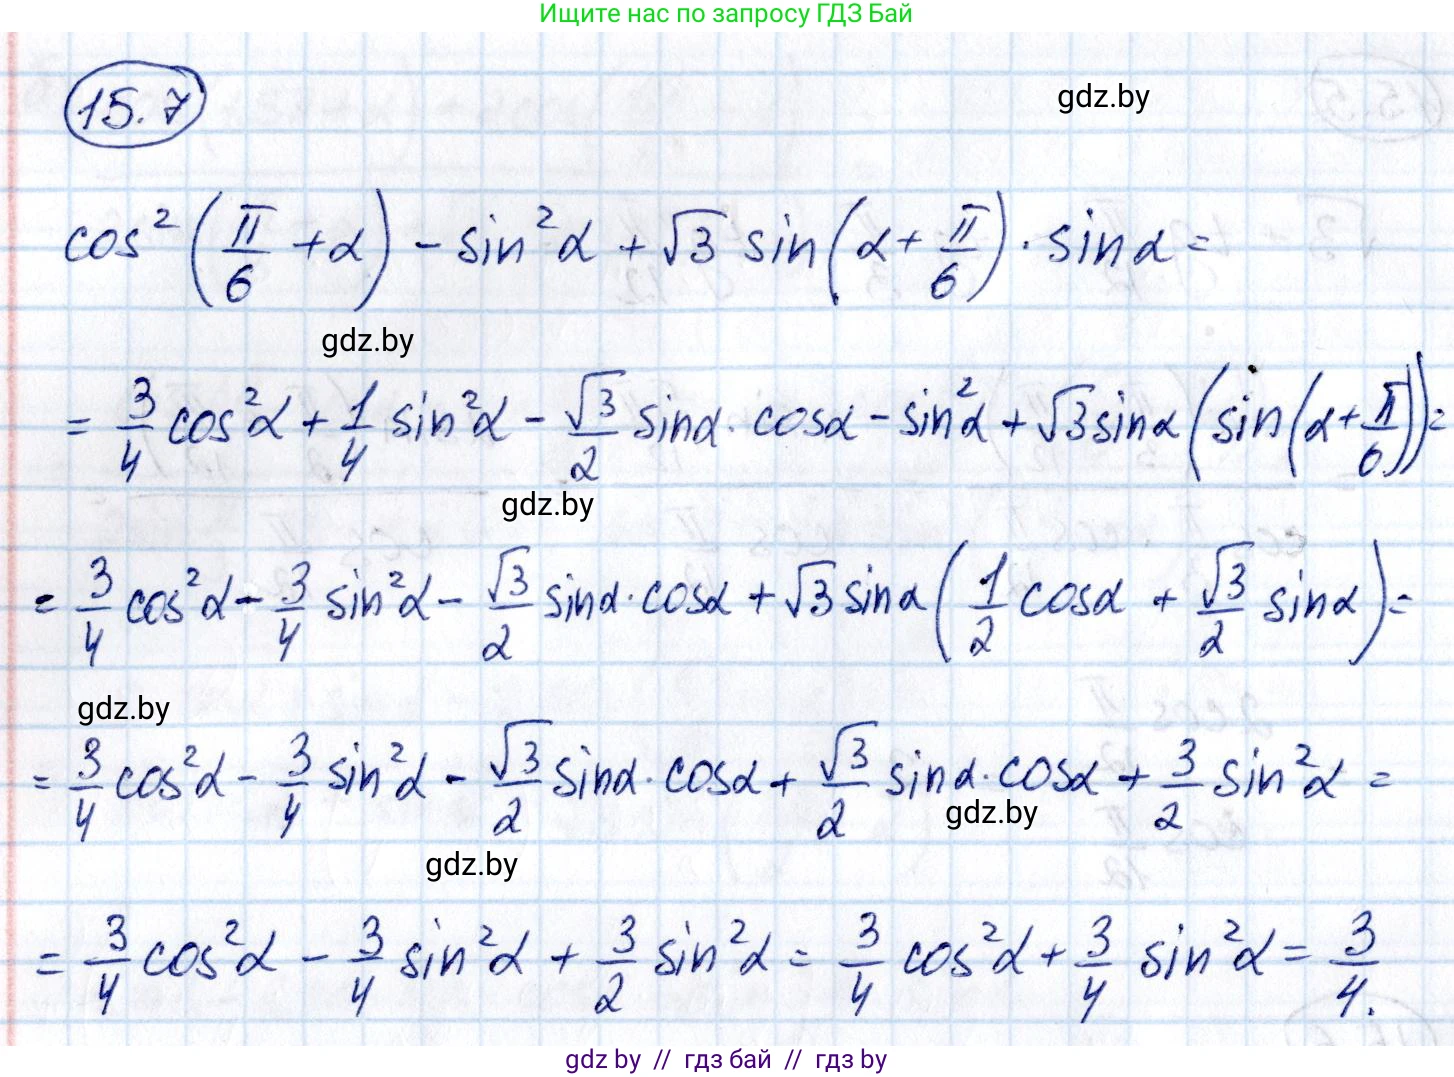 Ищите нас по запросу ГДЗ Бай
15.7
gdz.by
cos²(π/6 + α) - sin²α + √3 sin(α + π/6) · sinα =
gdz.by
= 3/4 cos²α + 1/4 sin²α - √3/2 sinα · cosα - sin²α + √3 sinα (sin(α + π/6)) =
gdz.by
= 3/4 cos²α - 3/4 sin²α - √3/2 sinα · cosα + √3 sinα (1/2 cosα + √3/2 sinα) =
gdz.by
= 3/4 cos²α - 3/4 sin²α - √3/2 sinα · cosα + √3/2 sinα · cosα + 3/2 sin²α =
gdz.by
gdz.by
= 3/4 cos²α - 3/4 sin²α + 3/2 sin²α = 3/4 cos²α + 3/4 sin²α = 3/4.
gdz by // гдз бай // гдз by